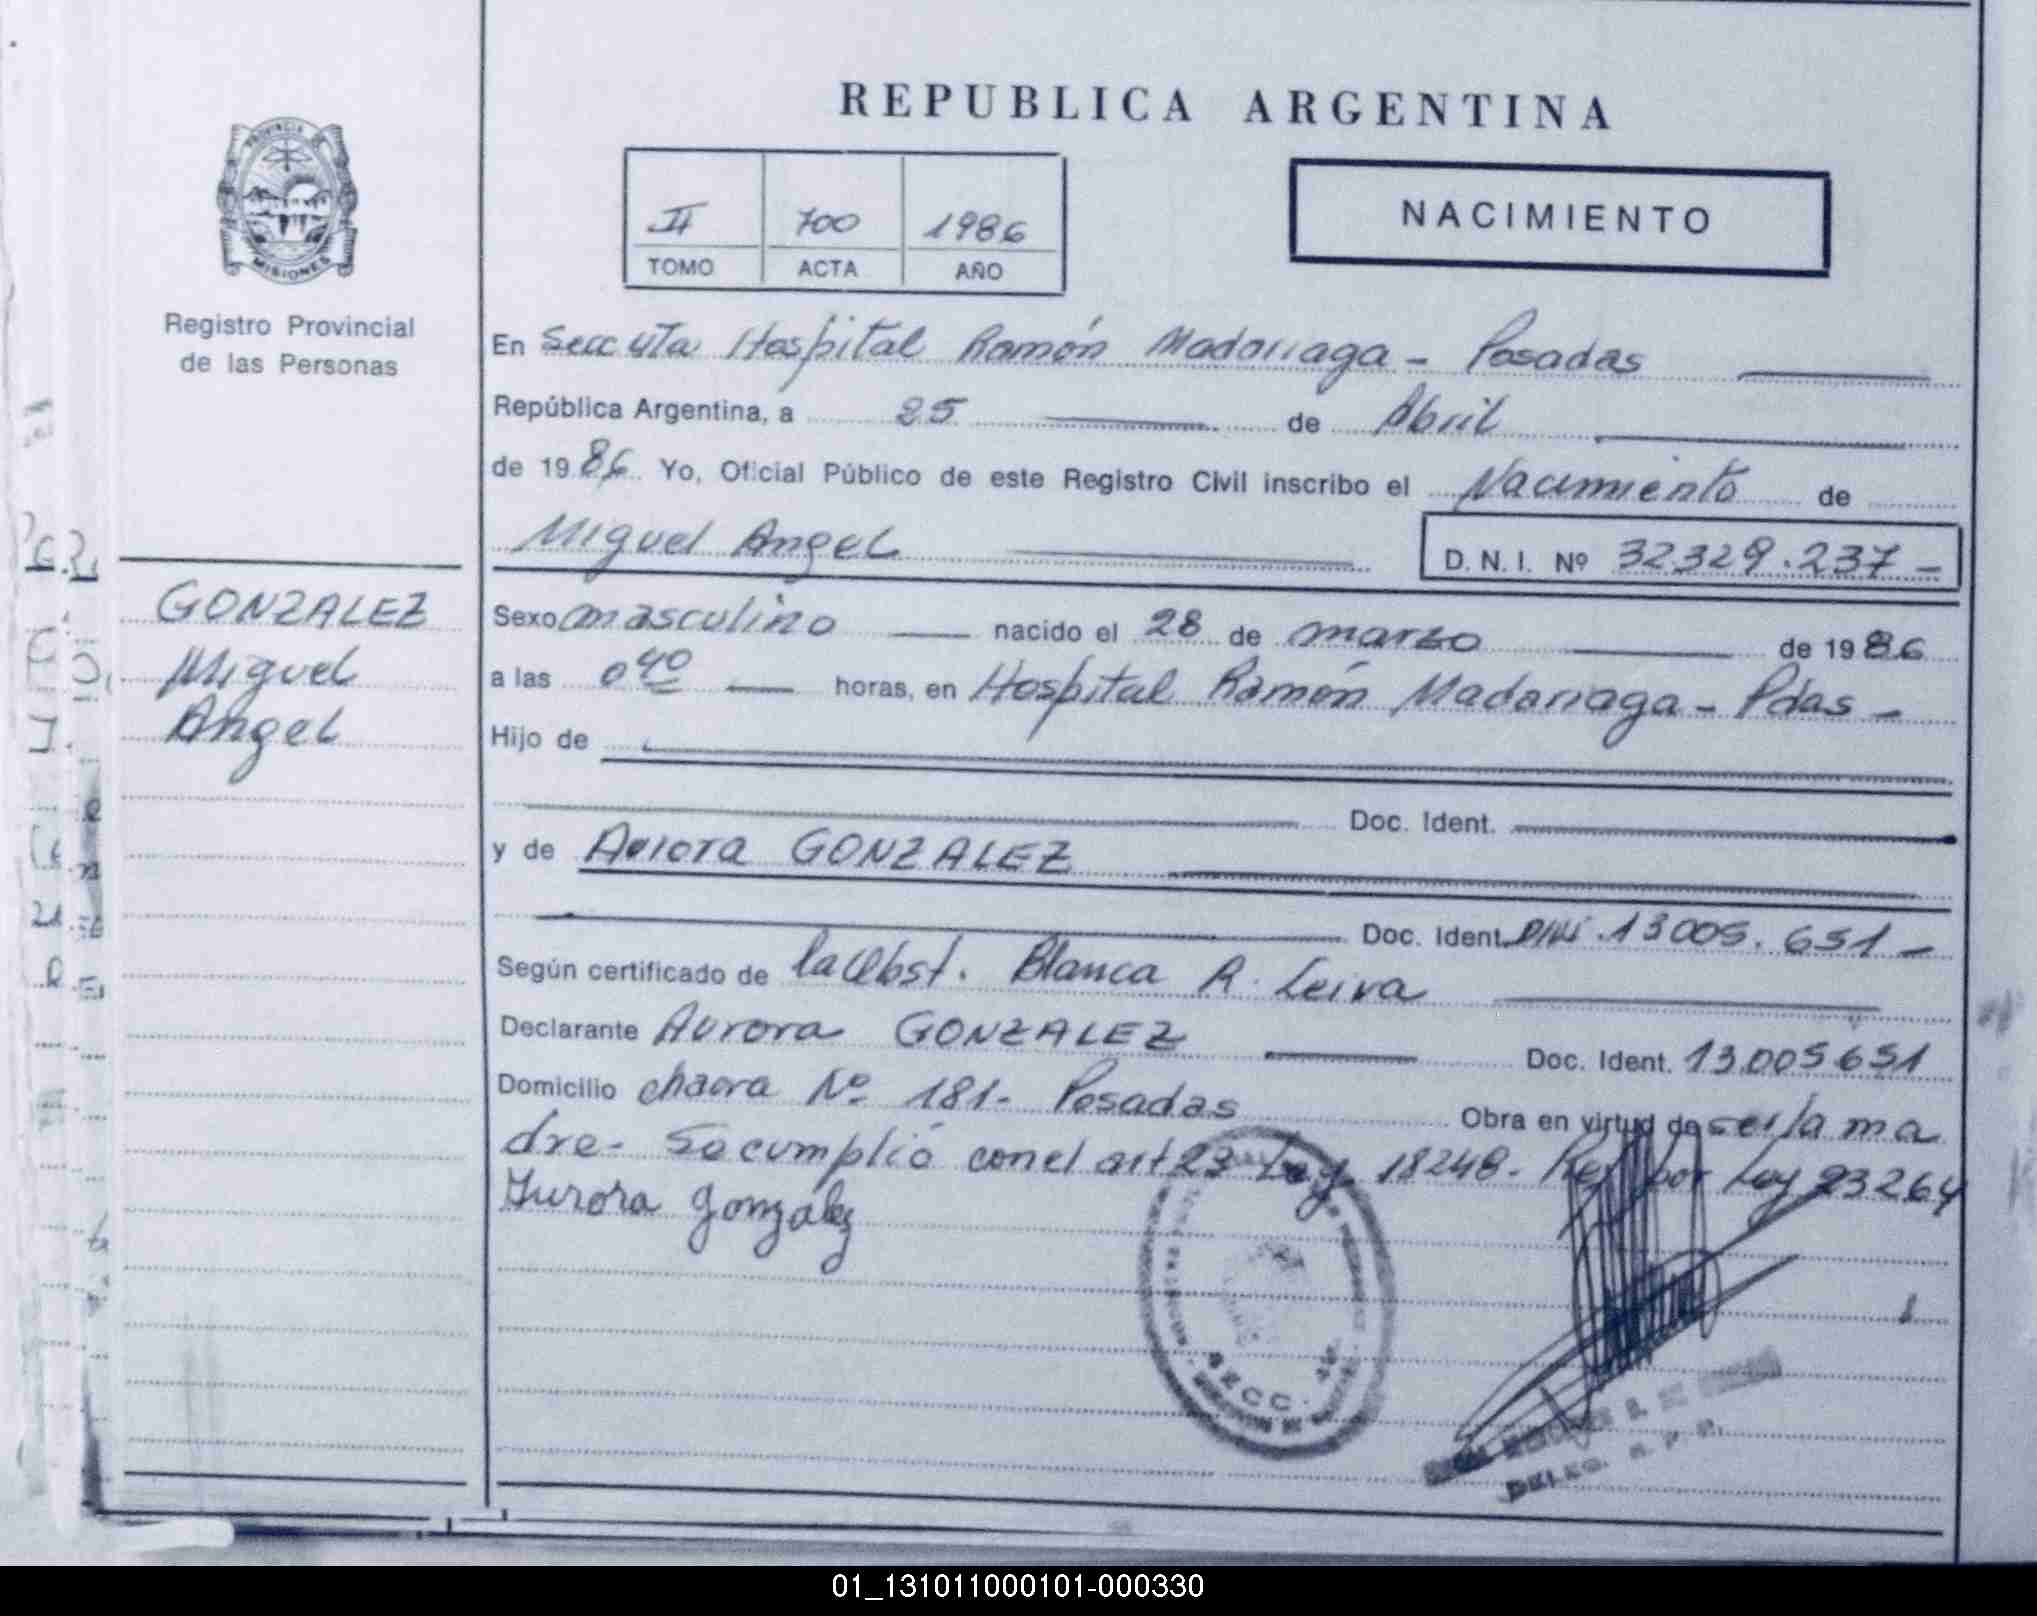 REPUBLICA ARGENTINA
PROVINCIA
MISIONES
Registro Provincial
de las Personas
II 700 1986
TOMO ACTA AÑO
NACIMIENTO
En Secc 4ta Hospital Ramón Madariaga - Posadas
República Argentina, a 25 de Abril
de 1986 Yo, Oficial Público de este Registro Civil inscribo el Nacimiento de
Miguel Angel D. N. I. Nº 32329.237-
GONZALEZ
Miguel
Angel
Sexo masculino nacido el 28 de marzo de 1986
a las 0 40 horas, en Hospital Ramón Madariaga - Pdas -
Hijo de
Doc. Ident.
y de Aurora GONZALEZ
Doc. Ident. DNI. 13005.651-
Según certificado de la Obst. Blanca R. Leiva
Declarante Aurora GONZALEZ Doc. Ident. 13.005651
Domicilio chacra Nº 181- Posadas Obra en virtud de ser la ma
dre- Se cumplió con el art 23 Ley 18248- Ref por Ley 23264
Aurora González
SECC. 4ta
DELEG. R. P. P.
01_131011000101-000330